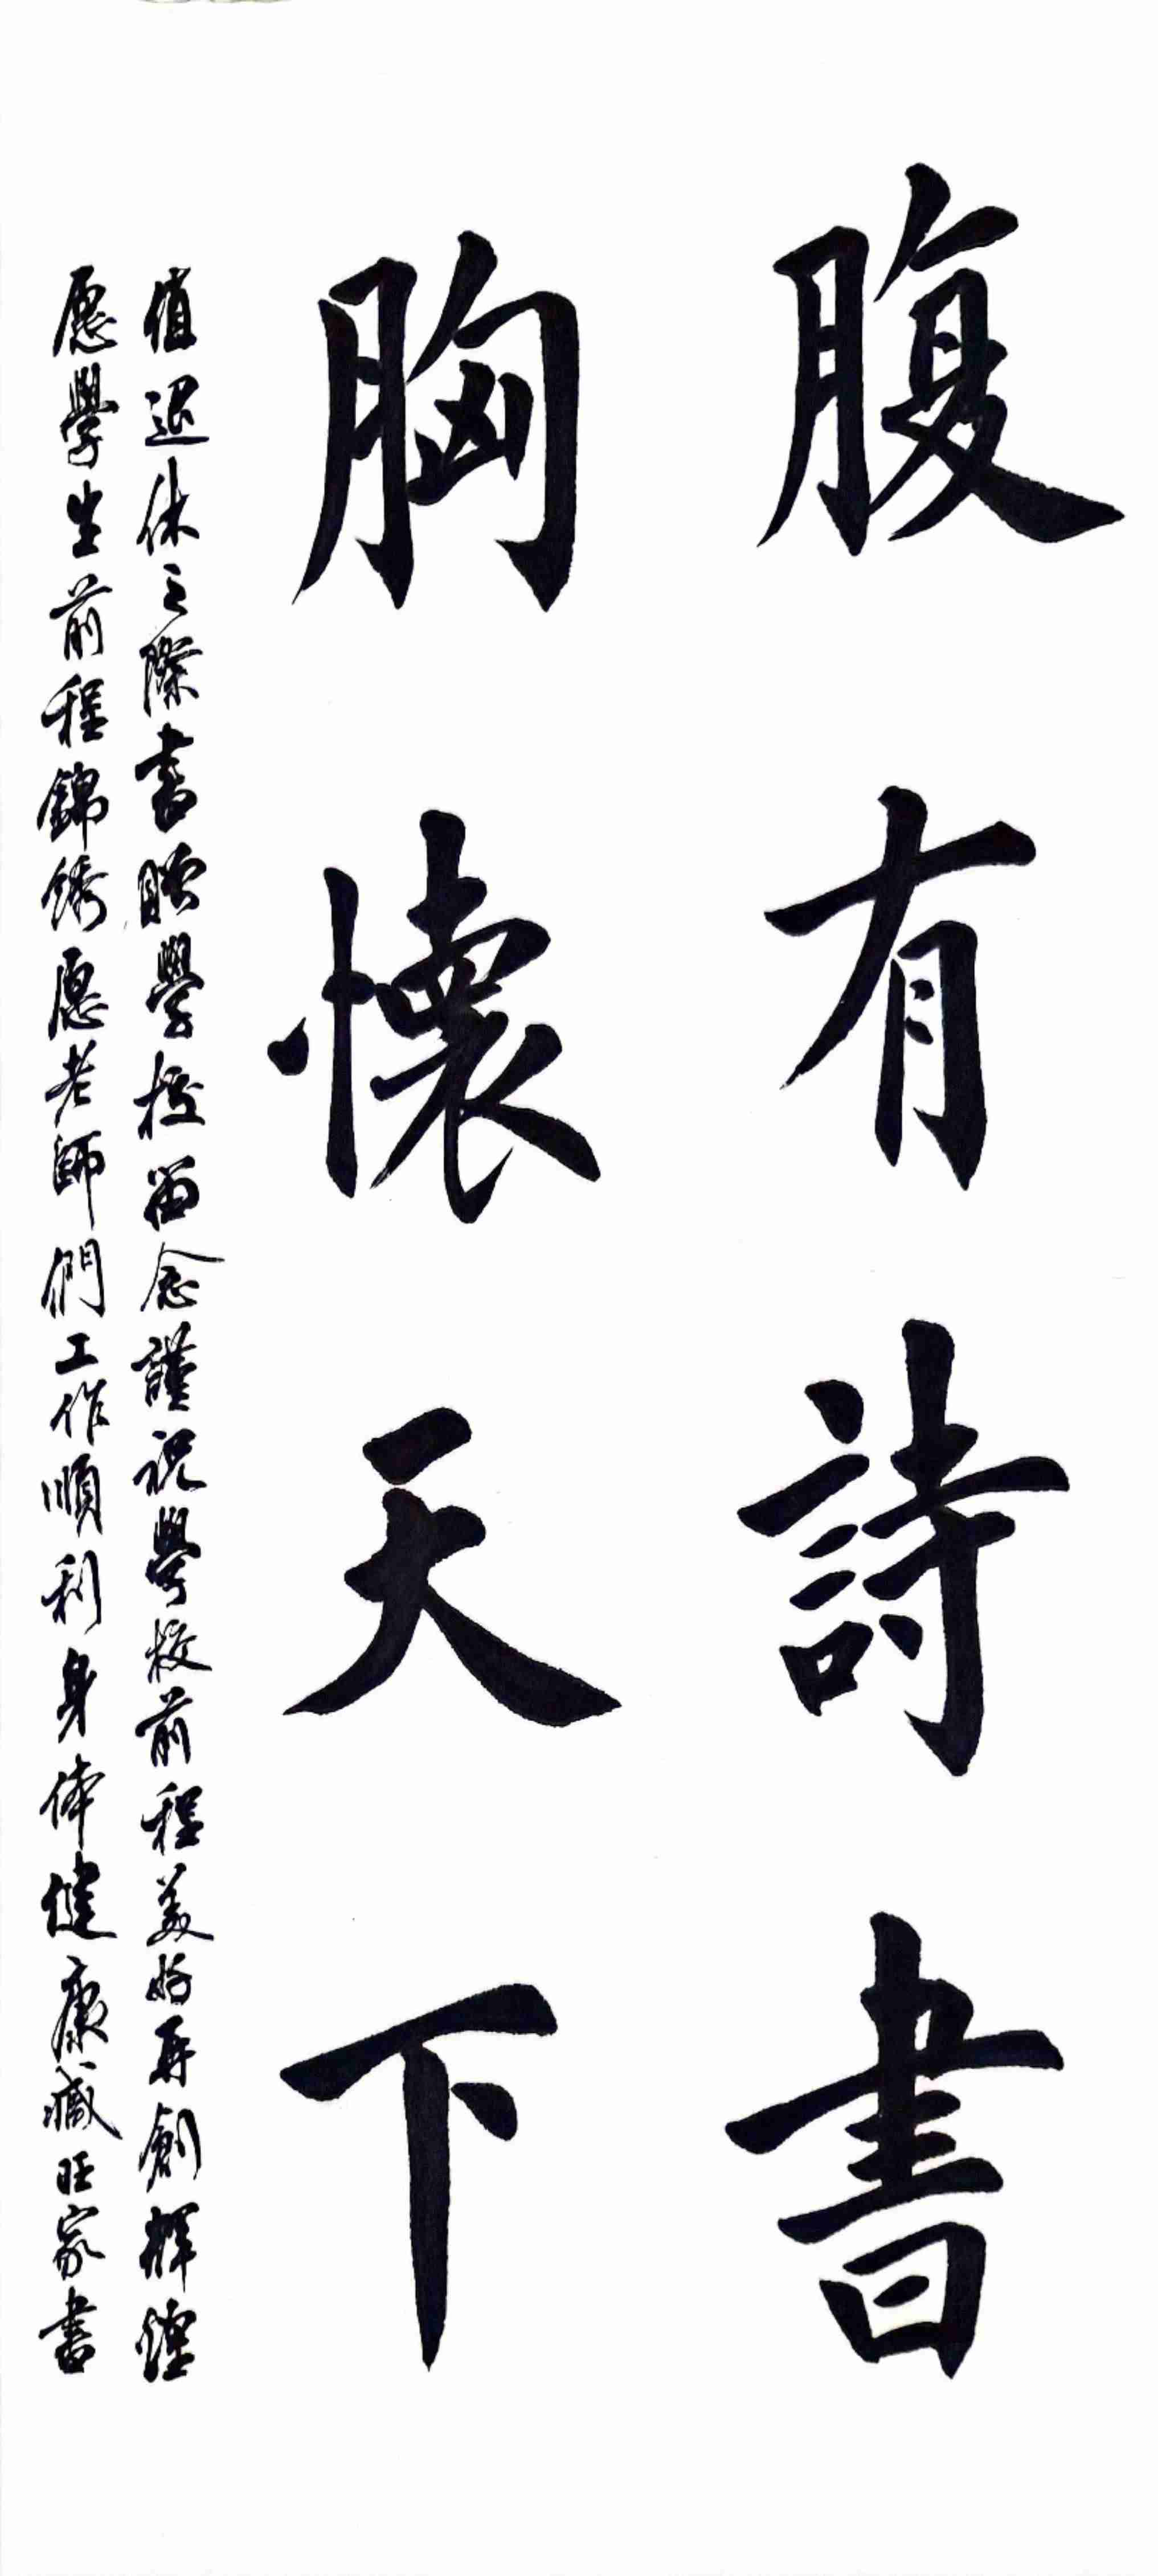 腹有詩書
胸懷天下
值退休之際書贈學校留念謹祝學校前程美好再創輝煌
愿學生前程錦綉愿老師們工作順利身体健康臧旺家書